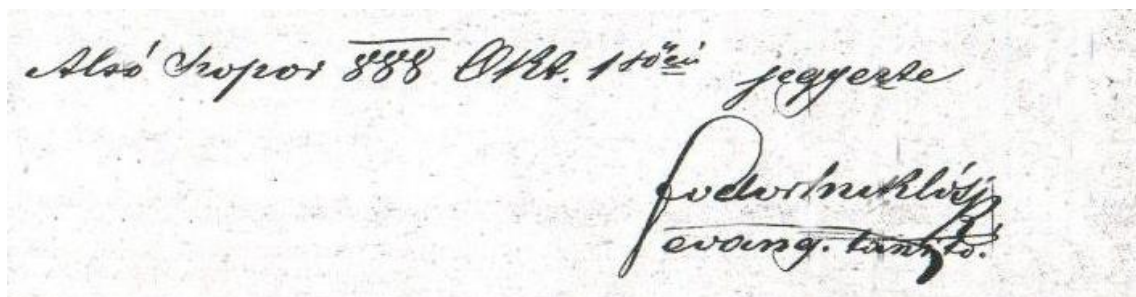 Alsó Szopor 888 Okt. 1sőén jegyezte
Fodor Miklós
evang. tanító.